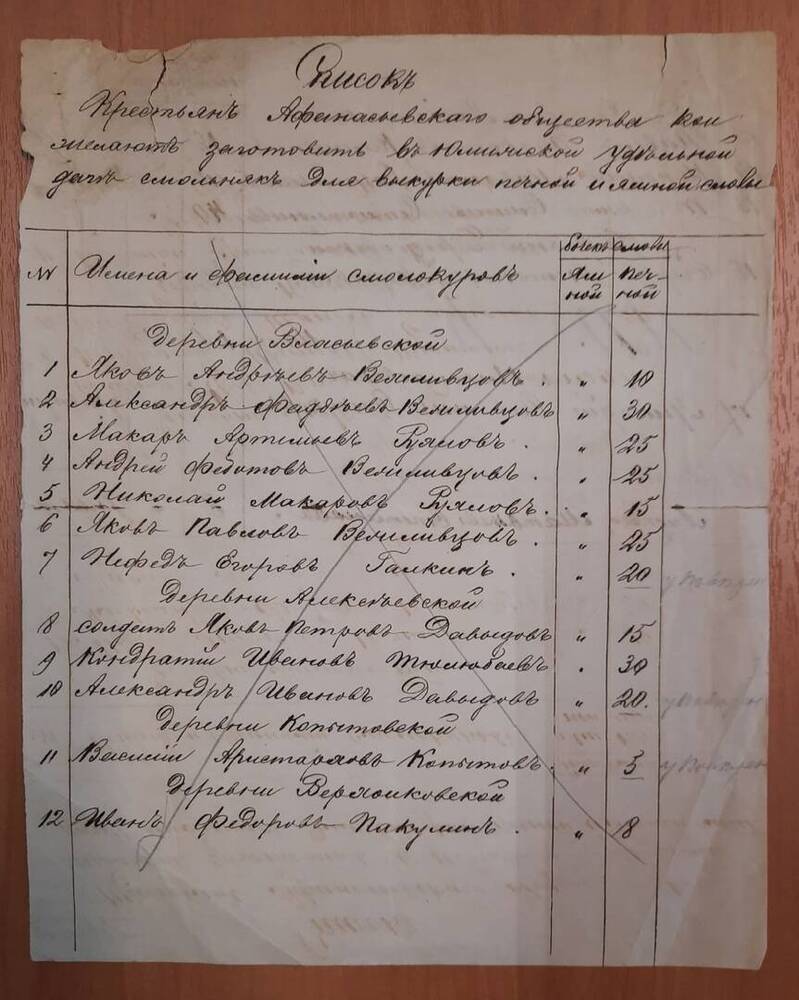 Списокъ
Крестьянъ Афанасьевскаго общества кои
желаютъ заготовить въ удѣльной
дачѣ смольнякъ для выкурки печной и ямной смолы
№ Имена и фамиліи смолокуровъ
бочекъ смолы
Ям
ной
печ-
ной
Деревни Власьевской
1 Яковъ Андрѣевъ Велиливцовъ . „ 10
2 Александръ Фадѣевъ Велиливцовъ „ 30
3 Макаръ Артемьевъ Рухловъ . „ 25
4 Андрей Федотовъ Велиливцовъ . „ 25
5 Николай Макаровъ Рухловъ . „ 15
6 Яковъ Павловъ Велиливцовъ . „ 25
7 Нефедъ Егоровъ Галкинъ . „ 20
Деревни Алексѣевской
8 солдатъ Яковъ Петровъ Давыдовъ „ 15
9 Кондратій Ивановъ Тюлюбаевъ „ 30
10 Александръ Ивановъ Давыдовъ „ 20.
Деревни Копытовской
11 Василій Аристарховъ Копытовъ . „ 5
Деревни
12 Иванъ Федоровъ Пакулинъ . „ 8